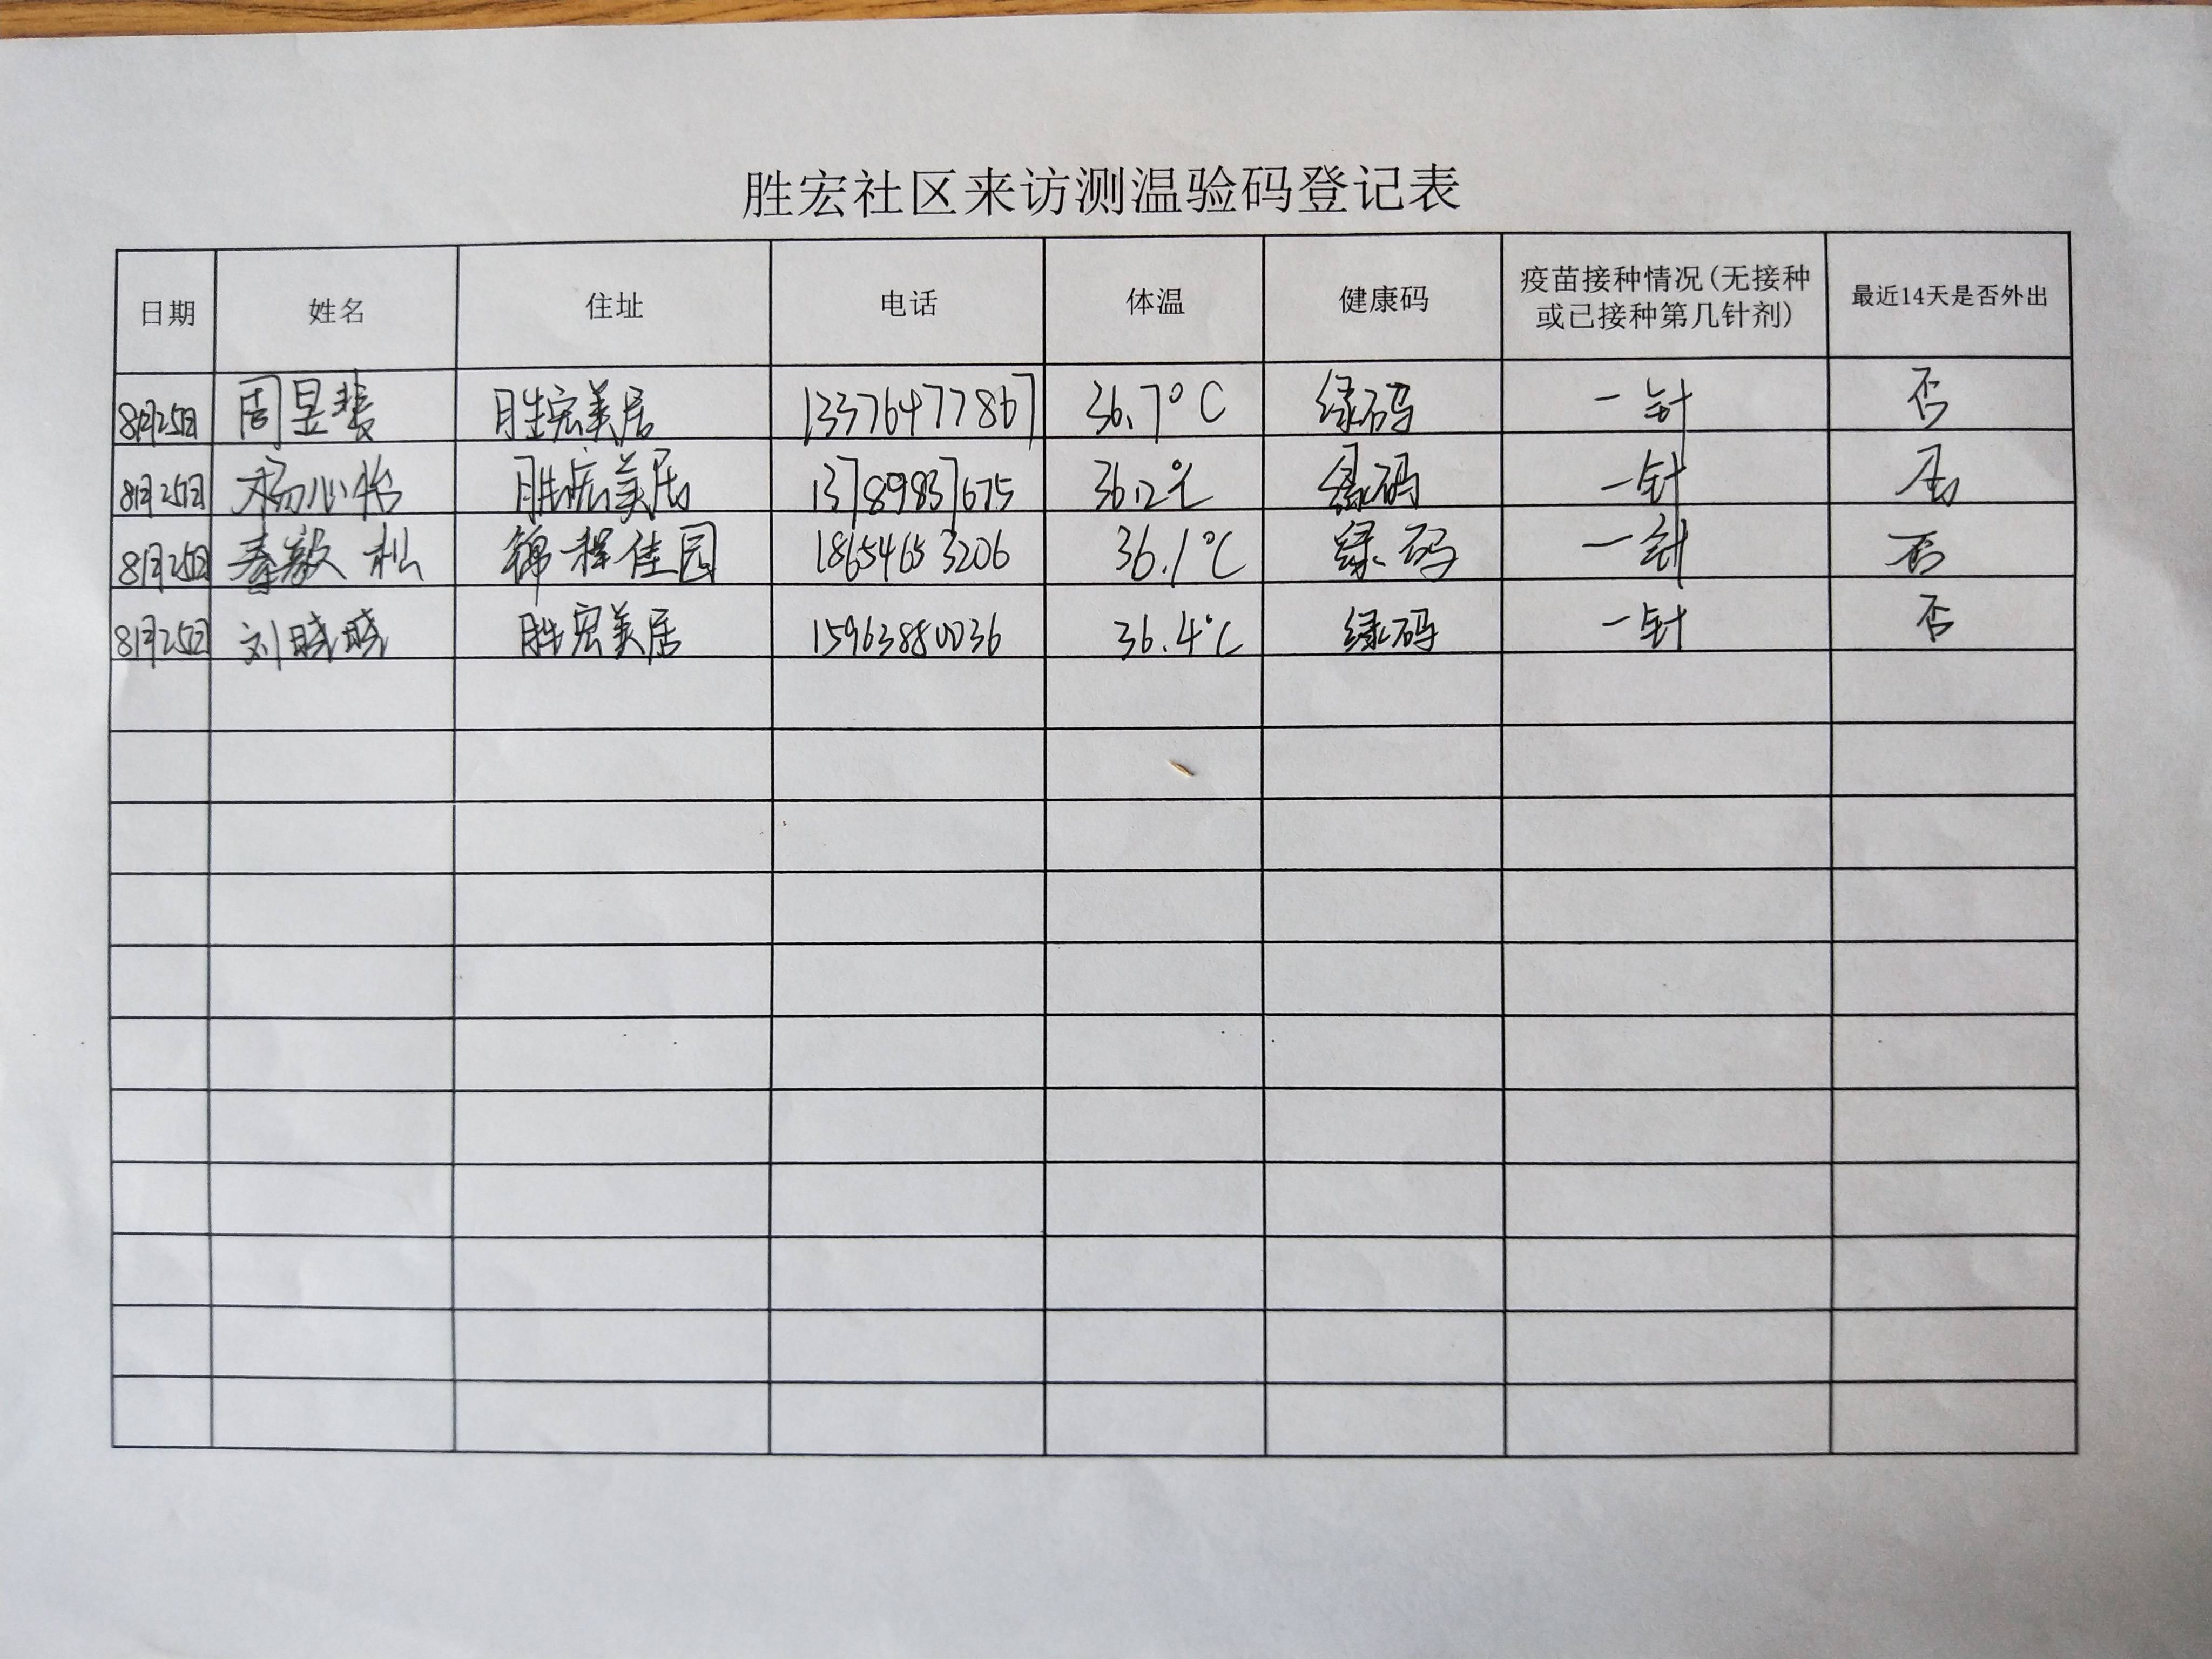 胜宏社区来访测温验码登记表
日期 姓名 住址 电话 体温 健康码 疫苗接种情况(无接种或已接种第几针剂) 最近14天是否外出
8月25日 周昱斐 胜宏美居 13376477867 36.7°C 绿码 一针 否
8月25日 杨心怡 胜宏美居 13789837675 36.2℃ 绿码 一针 否
8月25日 秦敏 锦程佳园 18654653206 36.1°C 绿码 一针 否
8月25日 刘晓晓 胜宏美居 15963880036 36.4°C 绿码 一针 否